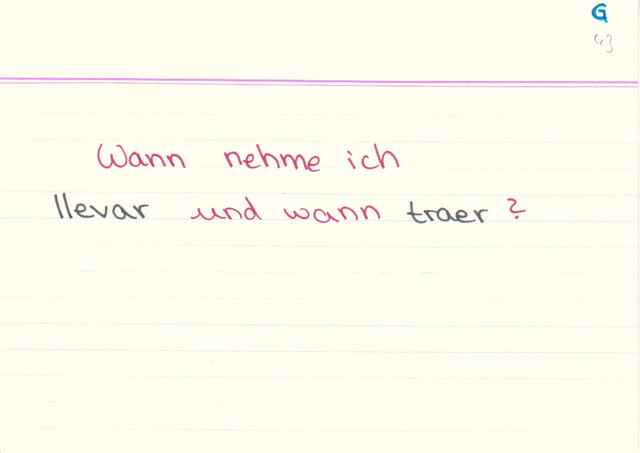 G
43
Wann nehme ich
llevar und wann traer?